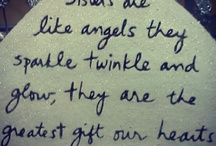 Sisters are
like angels they
sparkle twinkle and
glow, they are the
greatest gift our hearts